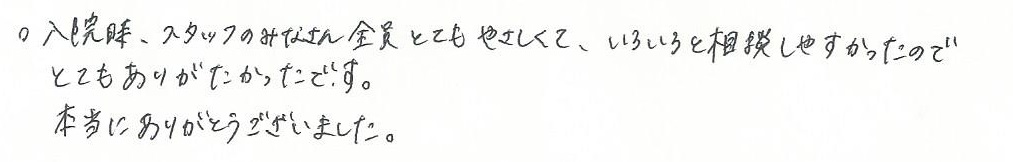 ○入院時、スタッフのみなさん全員とてもやさしくて、いろいろと相談しやすかったので
とてもありがたかったです。
本当にありがとうございました。